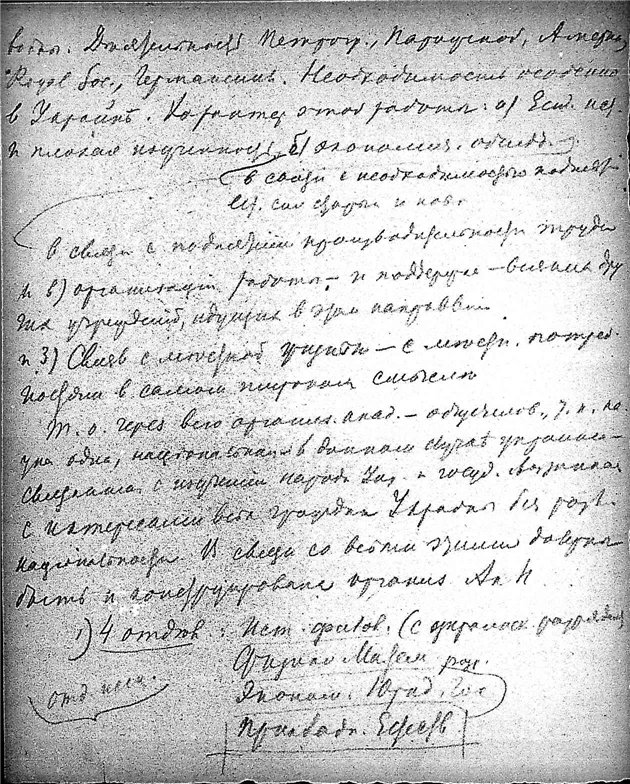 войны. Деятельность Петрогр., Парижской, Америк.,
Royal Soc., Германский. Необходимость особенно
в Украйне. Характер этой работы: а) Ест. ист.
и плохая изученность, б) экономич. обслед.
в связи с необходимостью поднять
сил старых и нов.
в связи с поднятием производительности труда
и в) организации работы – и поддержке –
учреждений, идущих в этом направлении
и 3) Связь с местной жизнью – с местн. потреб-
ностями в самом широком смысле
Т. о. через всю организ. акад. – общечелов., т. к. на-
ука одна, национальная в данном случае украинс-
связанная с изучением народа Укр. и госуд.
с интересами всех граждан Украины без разл.
национальности. В связи со всеми этими должна
быть и конструирована организ. Ак. Н.
1) 4 отдела: Ист. филол. (с украинск. разрядом)
Физико Матем. раз.
отд. Эконом. Юрид.
Прикладн. Естеств.